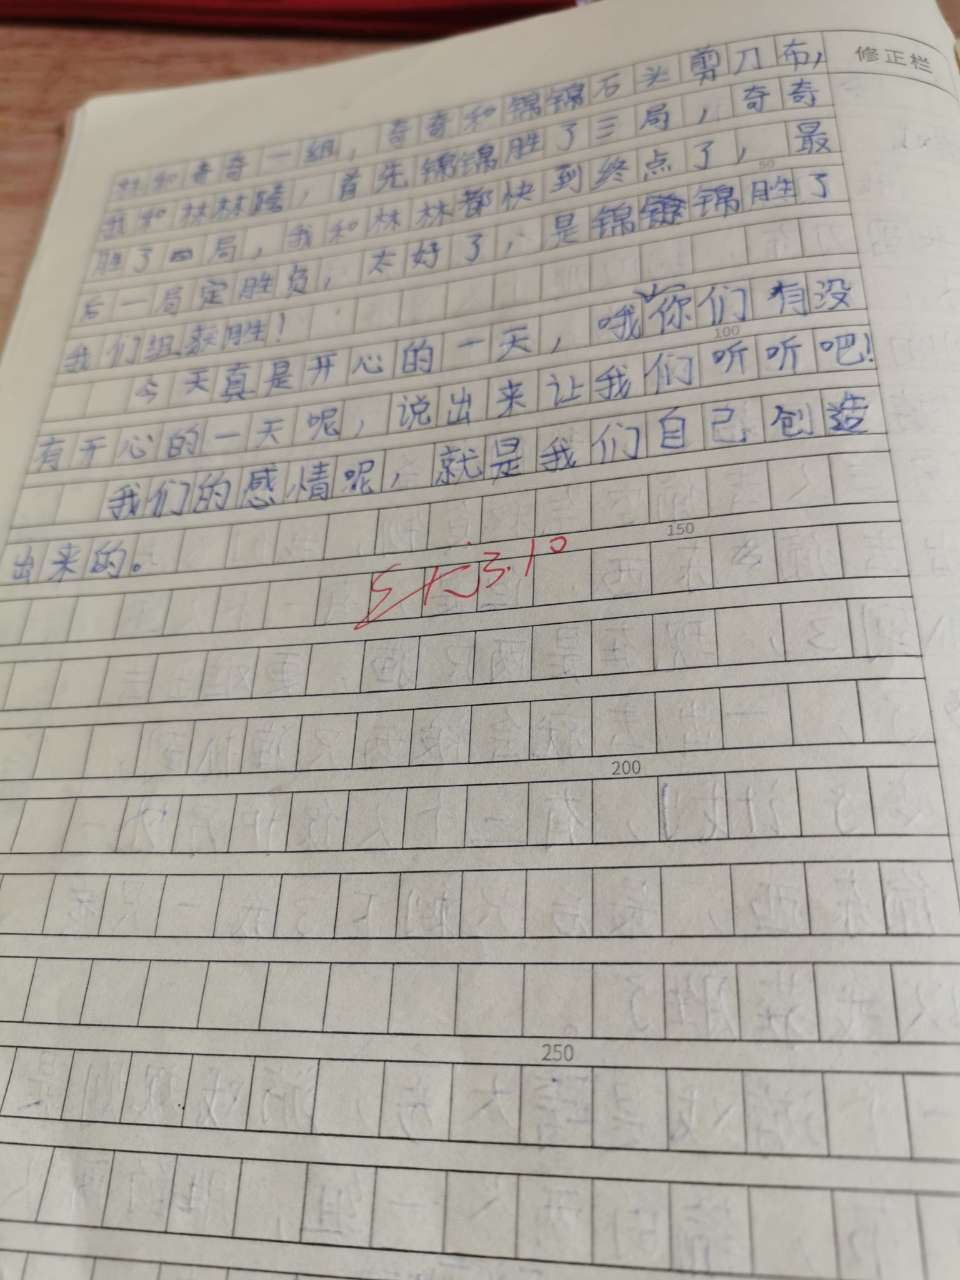 修正栏
林和奇奇一组，奇奇和锦锦石头剪刀布，
我和林林跨，首先锦锦胜了三局，奇奇
胜了四局，我和林林都快到终点了，最
50
后一局定胜负，太好了，是锦锦胜了
我们组获胜！
今天真是开心的一天，哦你们有没
100
有开心的一天呢，说出来让我们听听吧！
我们的感情呢，就是我们自己创造
出来的。
150
3.10
200
250